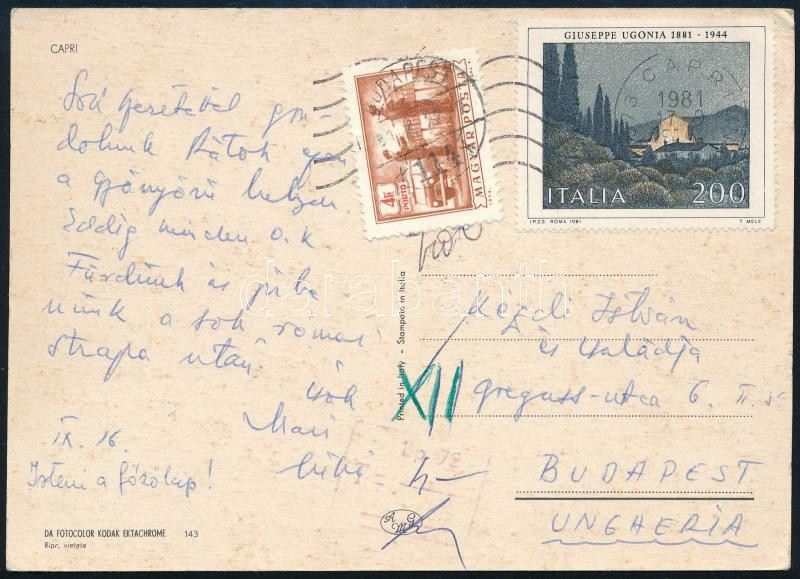 CAPRI
Sok szeretettel gon-
dolunk Rátok ezen
a gyönyörű helyen.
Eddig minden o.k
Fürdünk és pihe
nünk a sok római
strapa után.
Sok
Mari
IX. 16.
Isteni a főzőlap!
DA FOTOCOLOR KODAK EKTACHROME 143
Ripr. vietata
Printed in Italy - Stampato in Italia
BUDAPEST
114
MAGYAR POSTA
4Ft
PORTO
GIUSEPPE UGONIA 1881 - 1944
CAPRI
1981
ITALIA 200
I.P.Z.S. ROMA 1981 T. MELE
darabanth
István
és családja
XII
Greguss-utca 6. II. 5
BUDAPEST
UNGHERIA